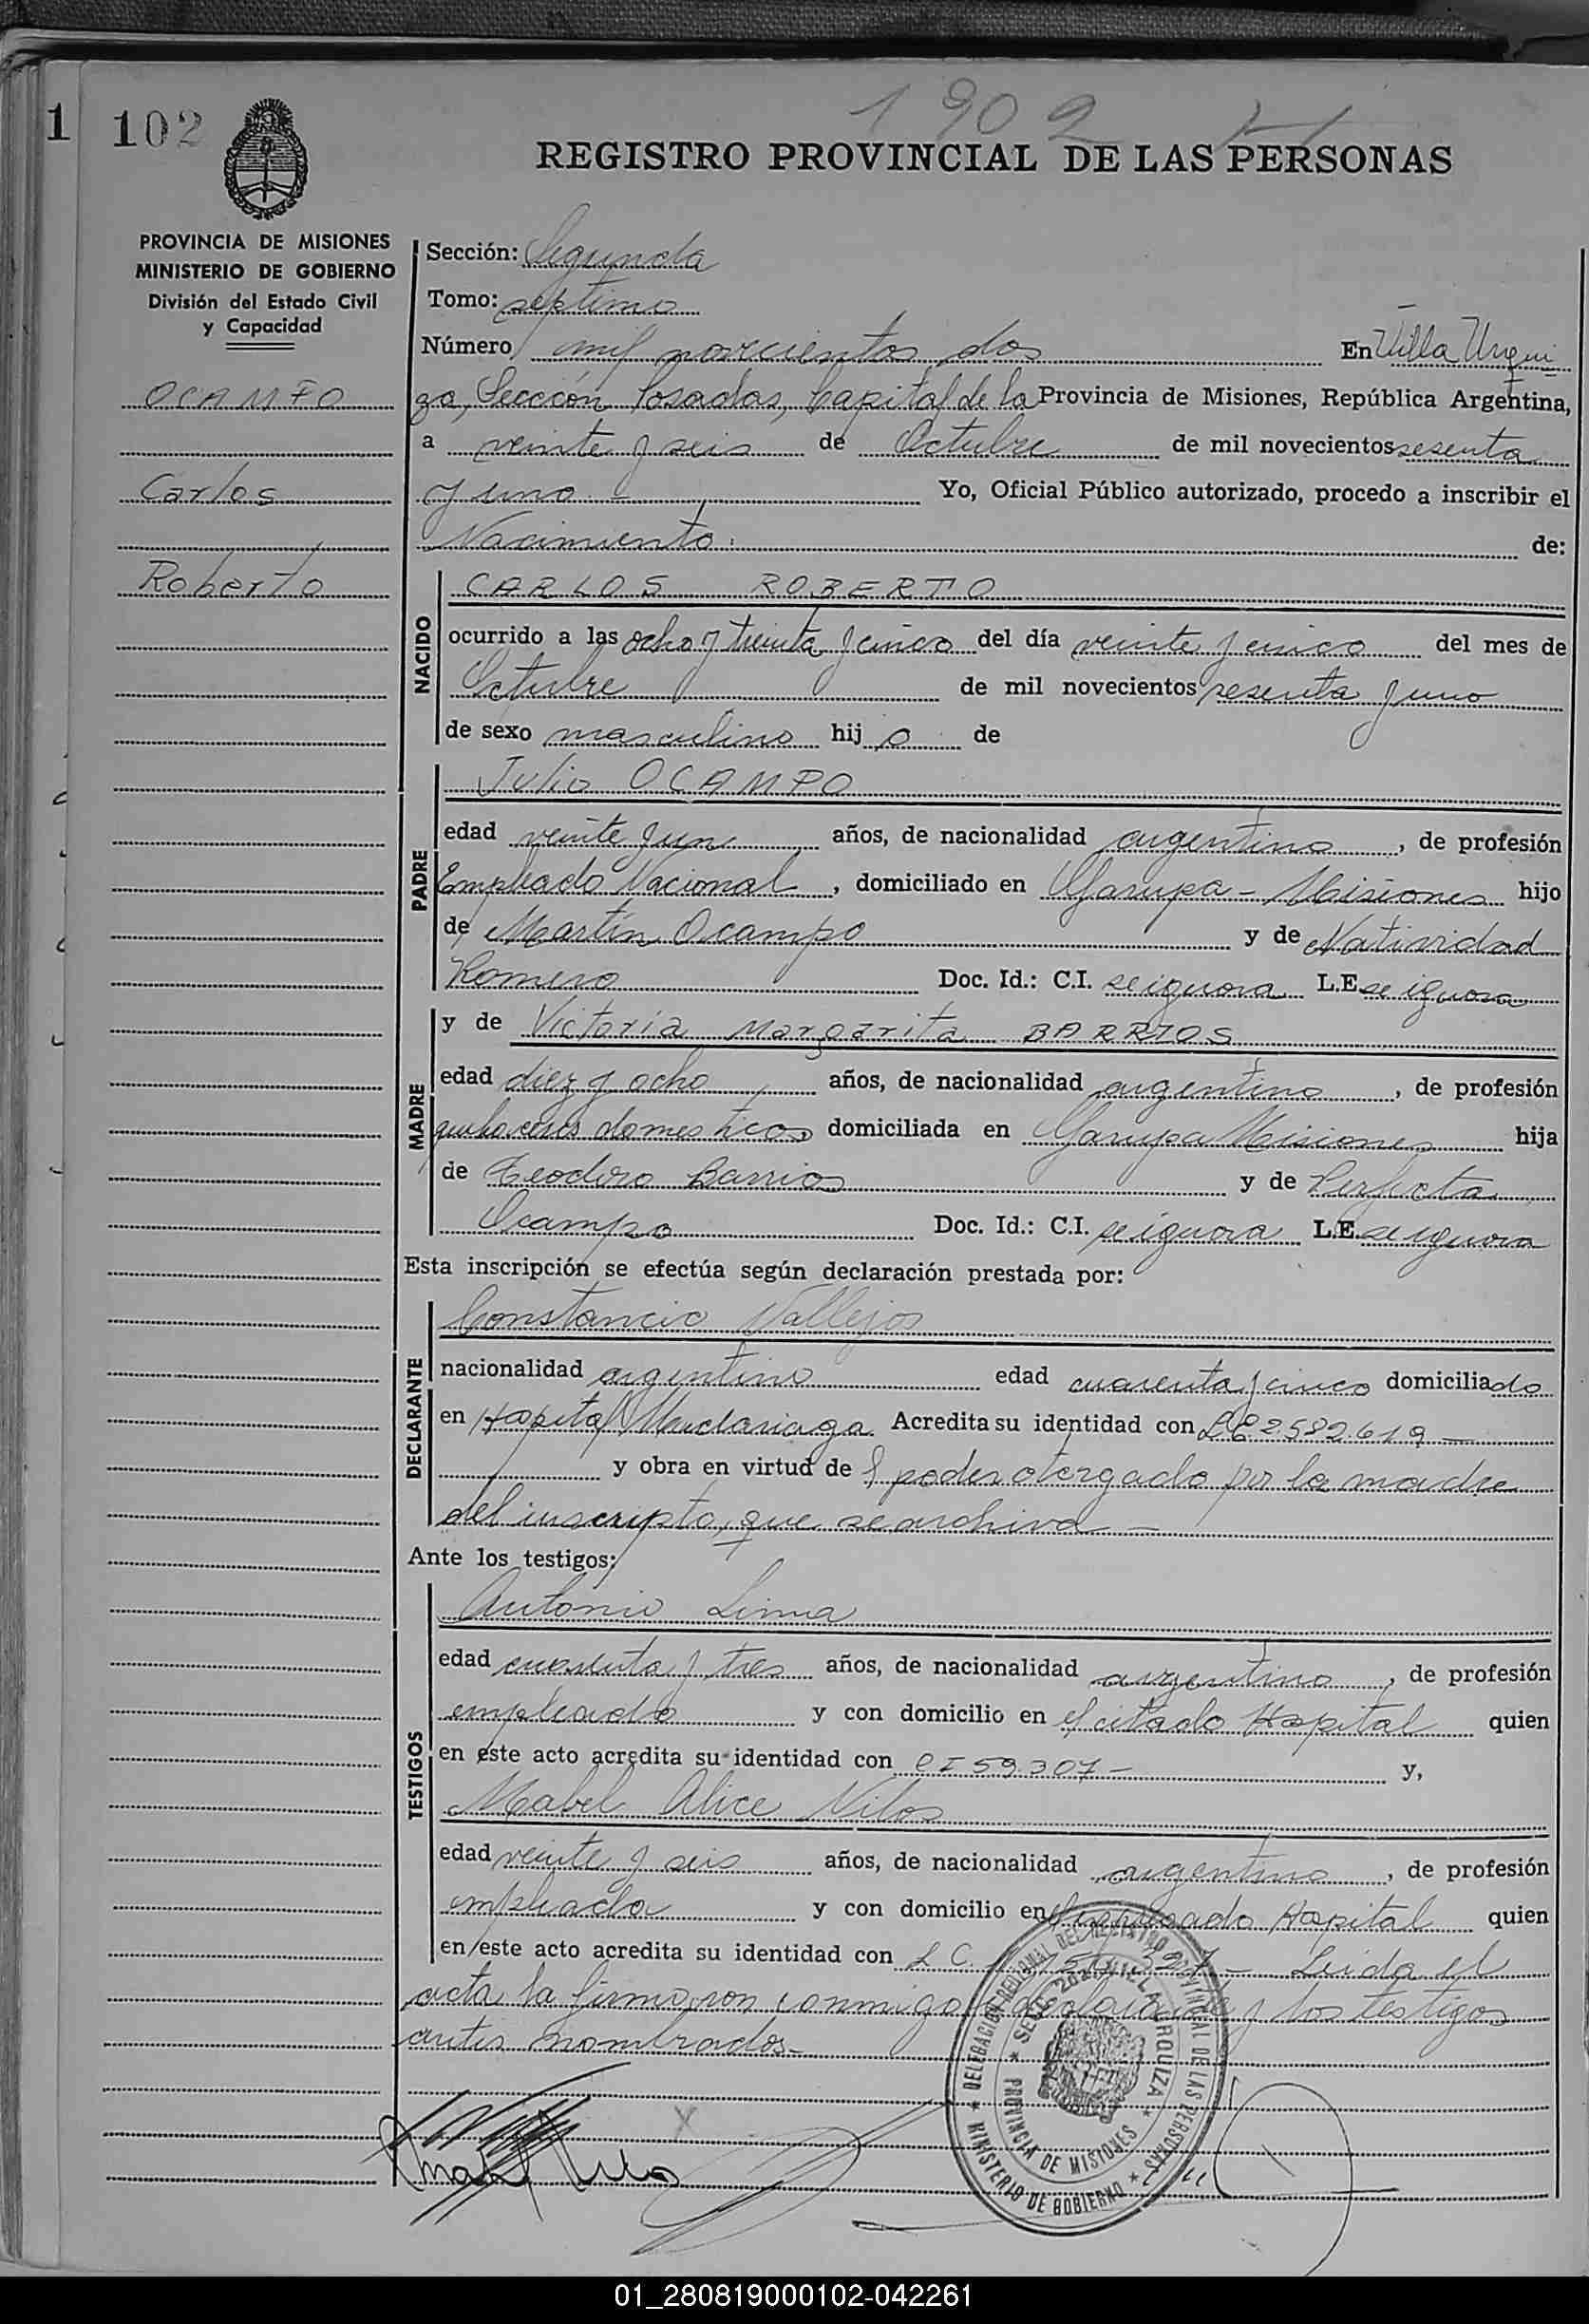 1902
1 102
REGISTRO PROVINCIAL DE LAS PERSONAS
PROVINCIA DE MISIONES
MINISTERIO DE GOBIERNO
División del Estado Civil
y Capacidad
OCAMPO
Carlos
Roberto
Sección: Segunda
Tomo: septimo
Número mil novecientos dos En Villa Urqui
za, Sección Posadas, Capital de la Provincia de Misiones, República Argentina,
a veinte y seis de Octubre de mil novecientos sesenta
y uno - Yo, Oficial Público autorizado, procedo a inscribir el
Nacimiento. de:
NACIDO
CARLOS ROBERTO
ocurrido a las ocho y treinta y cinco del día veinte y cinco del mes de
Octubre de mil novecientos sesenta y uno
de sexo masculino hij o de
PADRE
Julio OCAMPO
edad veinte y un años, de nacionalidad argentino, de profesión
Empleado Nacional, domiciliado en Garupa - Misiones hijo
de Martín Ocampo y de Natividad
Romero Doc. Id.: C.I. se ignora L.E. se ignora
MADRE
y de Victoria Margarita BARRIOS
edad diez y ocho años, de nacionalidad argentina, de profesión
quehaceres domesticos domiciliada en Garupa Misiones hija
de Teodoro Barrios y de Perfecta
Ocampo Doc. Id.: C.I. se ignora L.E. se ignora
Esta inscripción se efectúa según declaración prestada por:
DECLARANTE
Constancio Vallejos
nacionalidad argentino edad cuarenta y cinco domiciliado
en Hospital Madariaga. Acredita su identidad con LE 2.582.619 -
y obra en virtud de l poder otorgado por la madre
del inscripto, que se archiva -
Ante los testigos:
TESTIGOS
Antonio Lima
edad cuarenta y tres años, de nacionalidad argentino, de profesión
empleado y con domicilio en el citado Hospital quien
en este acto acredita su identidad con CI 59.307 - y,
Mabel Alice Vilos
edad veinte y seis años, de nacionalidad argentina, de profesión
empleada y con domicilio en Hospital quien
en este acto acredita su identidad con L C. - Leida el
acta la firmaron conmigo declarante y los testigos
antes nombrados -
DELEGACION REGIONAL DEL REGISTRO PROVINCIAL DE LAS PERSONAS
MINISTERIO DE GOBIERNO
VILLA URQUIZA
PROVINCIA DE MISIONES
01_280819000102-042261